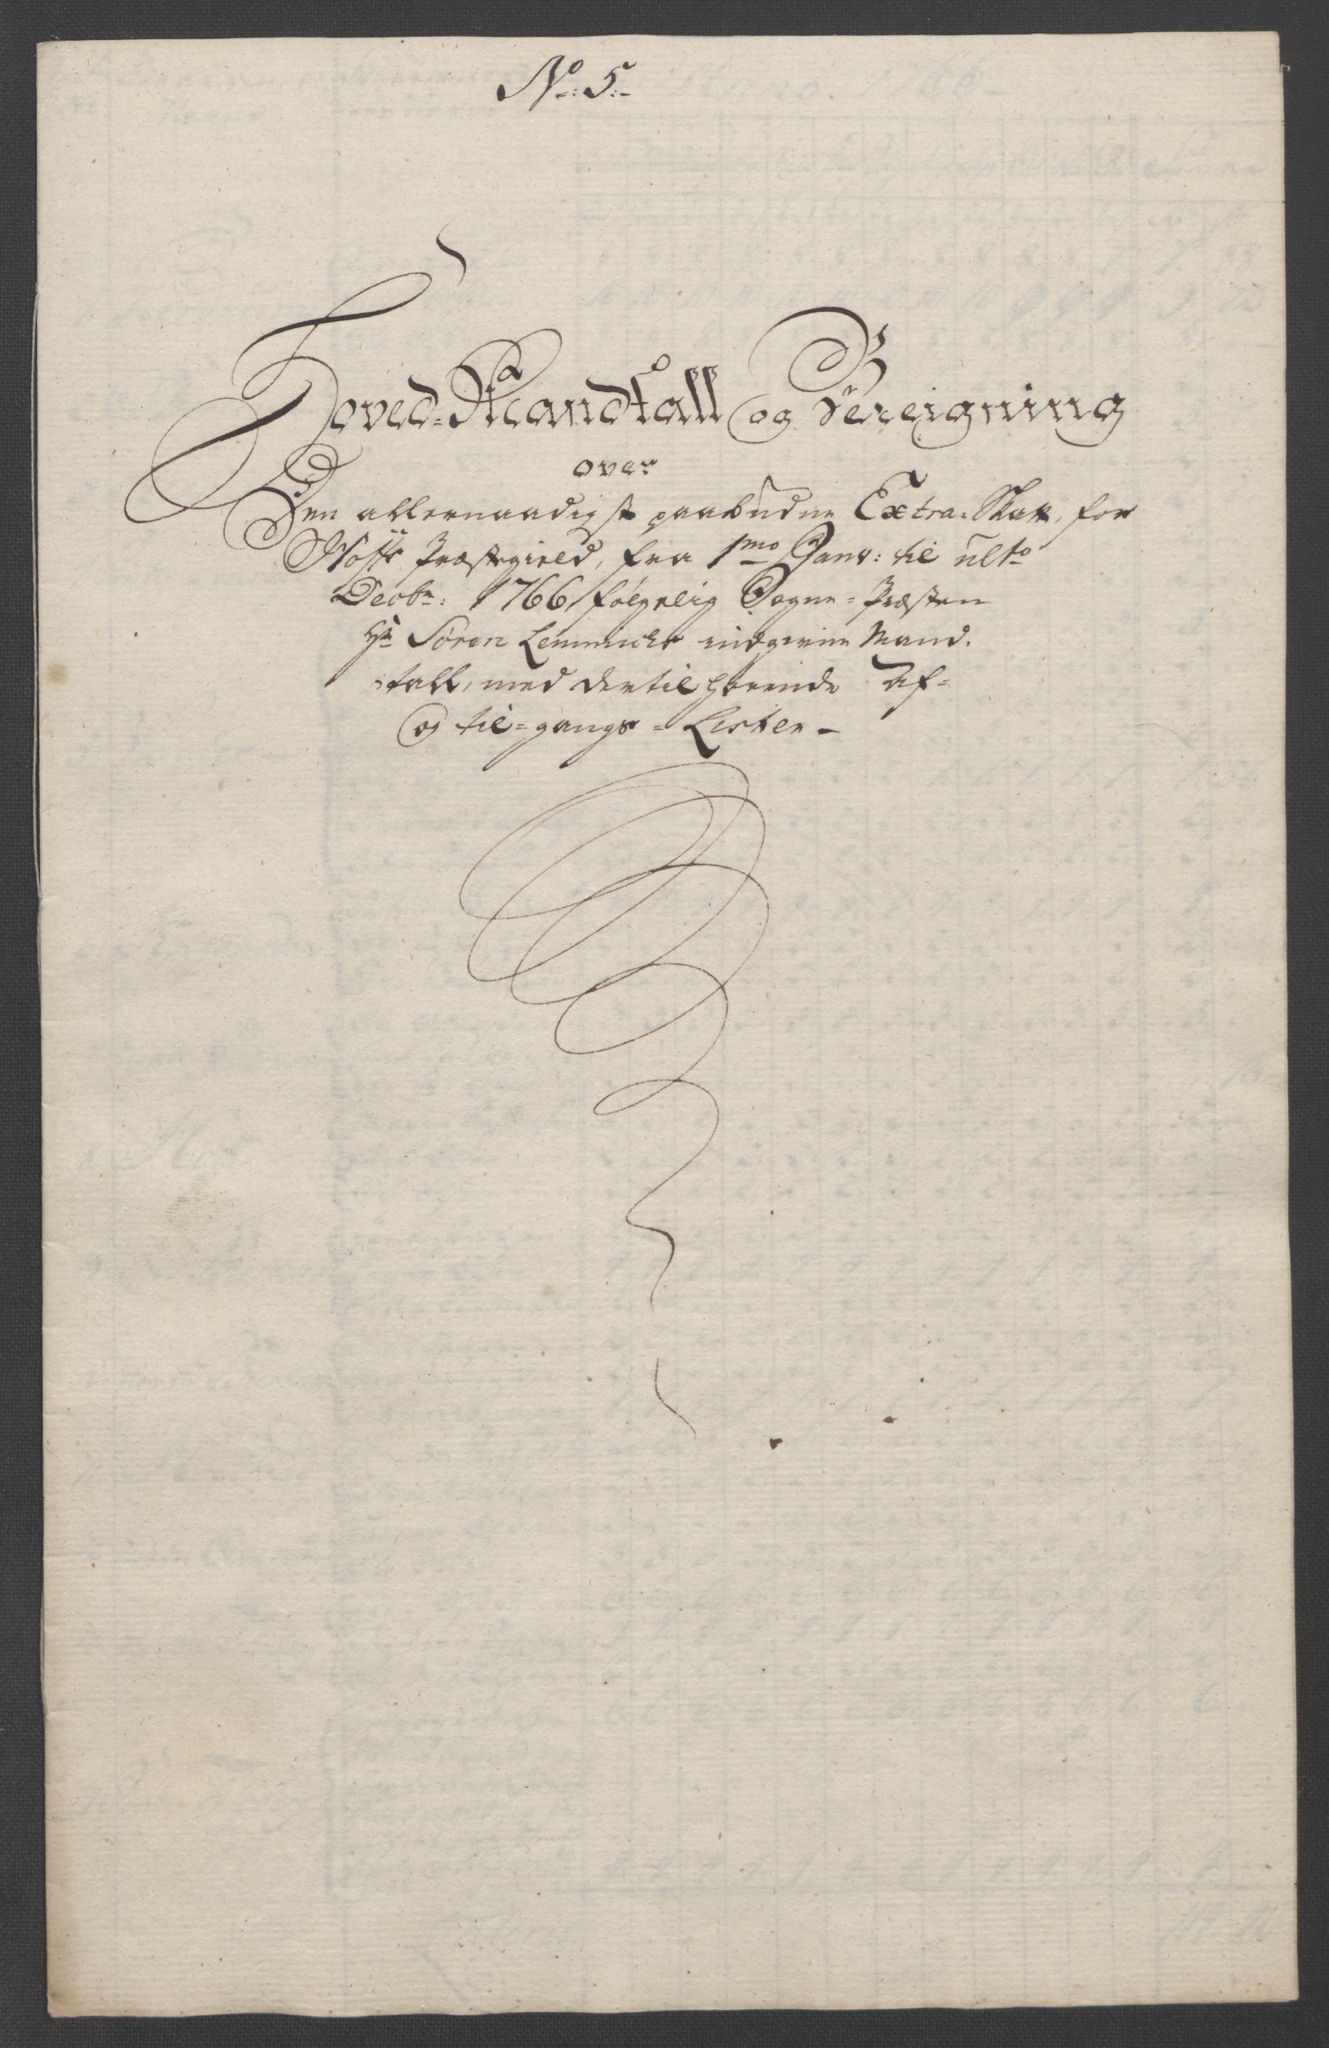 No: 5:
Hoved-Mandtall og Bereigning
over
Den allernaadigst paabudne Extra-Skatt, for
Præstegield, fra 1mo Janv: til ulto
Decbr: 1766 følgelig Sogne-Præsten
Hr Søren Lemmichs indgivne Mand-
tall, med dertil hørende Af-
og til-gangs-Lister-